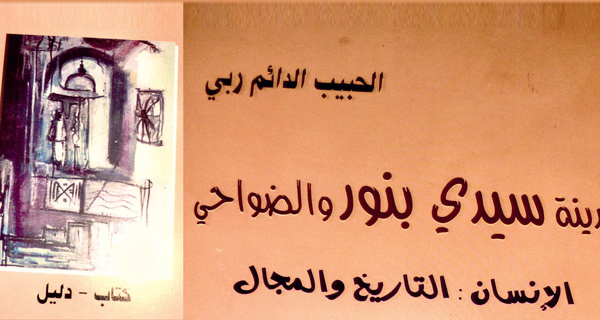 الحبيب الدائم ربي
دينة سيدي بنور والضواحي
الإنسان : التاريخ والمجال
كتاب - دليل